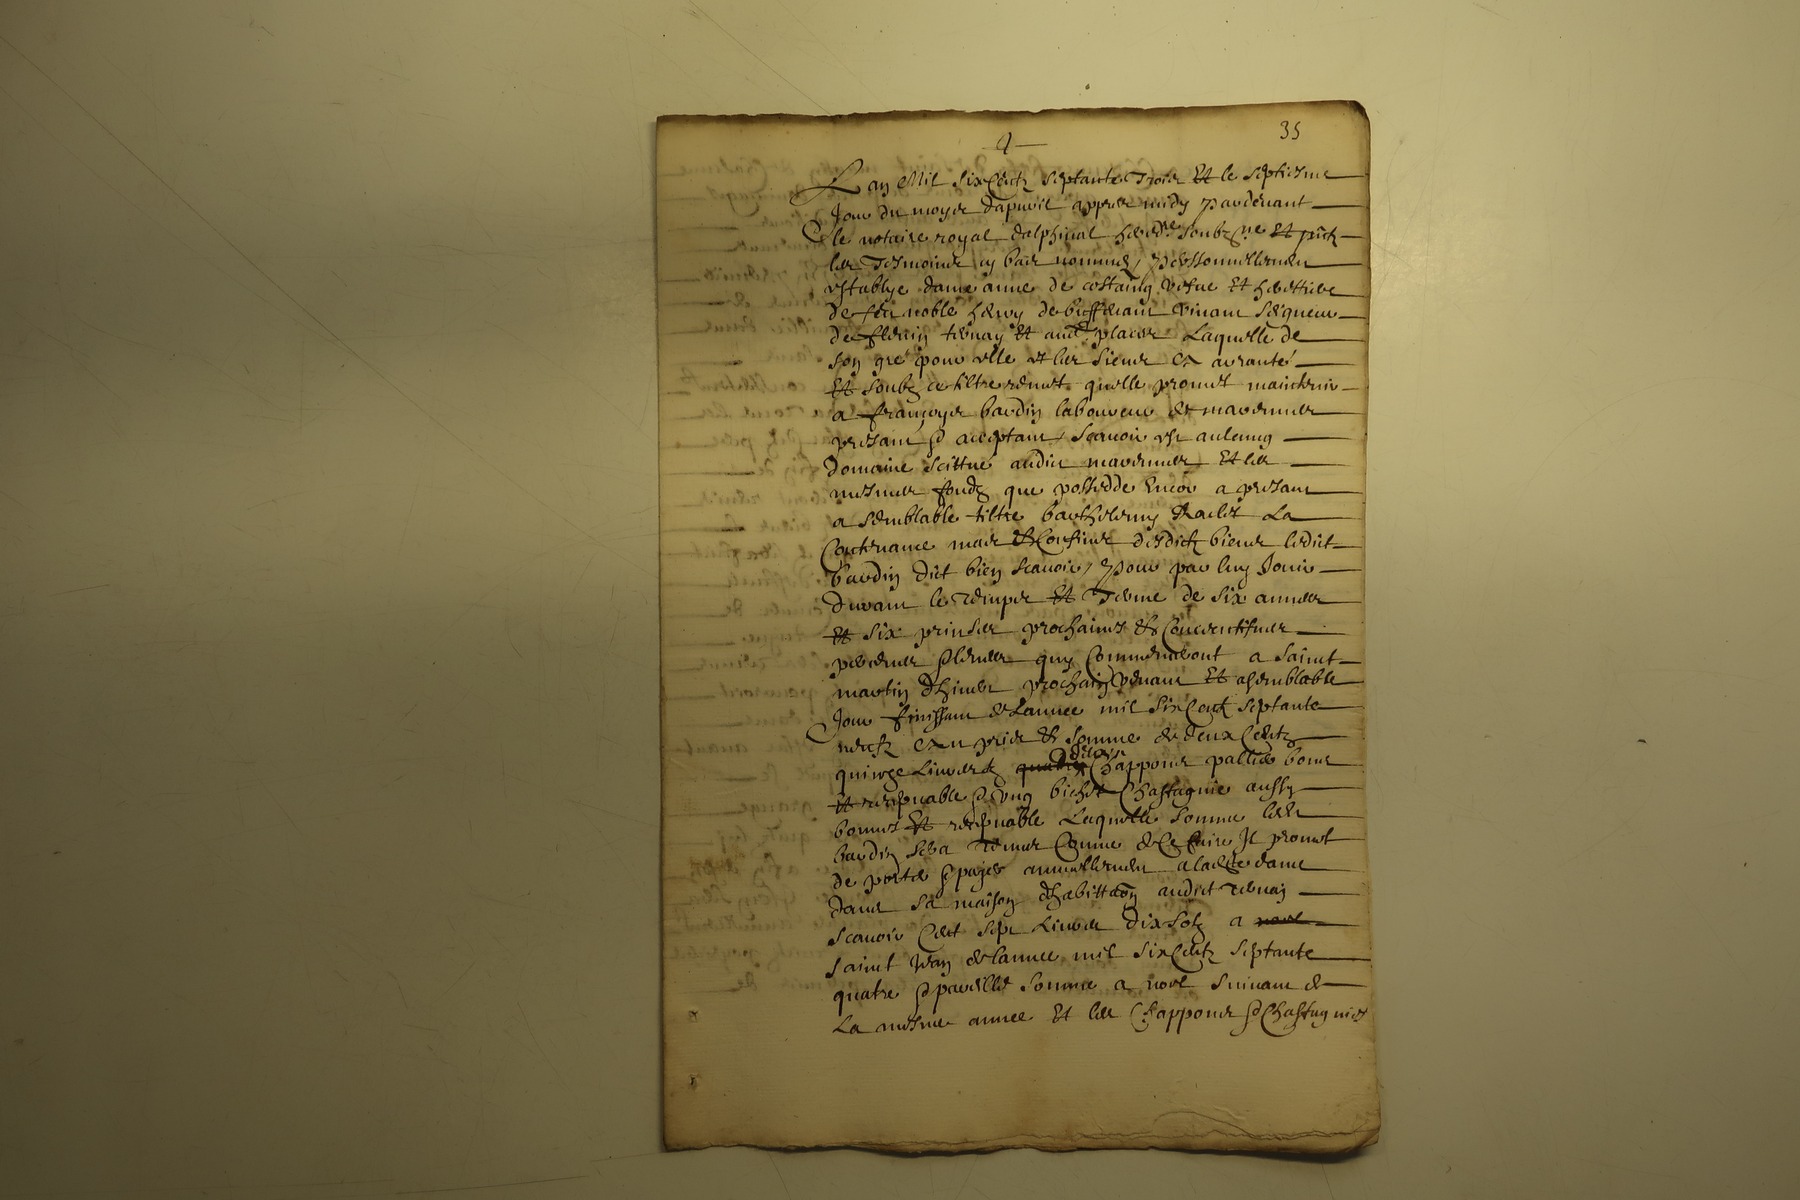 35
Lan Mil six Centz septante Trois Et le septiesme
Jour du moys dapvril appres midy pardevant
le notaire royal dalphinal heredre soubzne Et pntz
les Tesmoins cy bas nommez, personnellemen
establye dame anne de costaing vefve Et herettiere
de feu noble henry de buffevant vivant seigneur
de flevin ternay Et autres places Laquelle de
son gre pour elle et les siens a arranté
Et soubz ce tiltre remet quelle promet maintenir
a françoys bardin laboureur de marennes
presant & acceptant, scavoir est ung
domaine scittué audict marennes Et les
mesmes fondz que possedde encor a presant
a semblable tiltre barthelemy La
Contenance mas & Confins desdictz biens ledict
bardin dict bien scavoir, pour par luy Jouir
durant le Temps Et Terme de six annees
Et six prinses prochaines & Consecutifves
quy Commenceront a saint
martin dhiver prochain venant Et a semblable
Jour finissant de Lannee mil six Centz septante
neufz prix & somme de deux Centz
quinze Livres & dix Chappons pallies bons
Et recepvable & ung bichet Chastagnie aussy
bonnes Et recepvable Laquelle somme ledt
bardin sera Tenus Comme de Ce faire Il promet
de porter & payer annuellemen a ladicte dame
dans sa maison dhabittaon audict Ternay
scavoir Cent sept Livres dix solz a
saint Jean de lannee mil six Centz septante
quatre & pareille somme a noel suivant de
La mesme annee Et les Chappons & Chastagnies